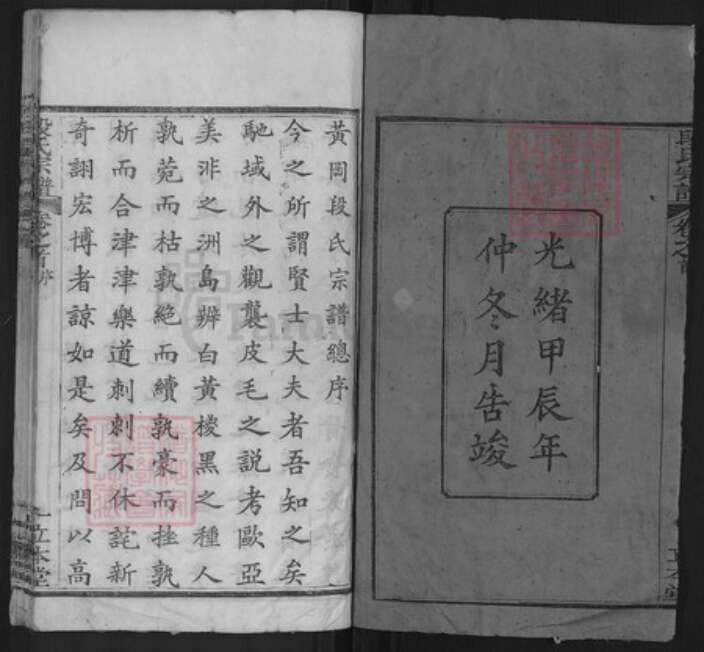 光緒甲辰年
仲冬月告竣
黃岡段氏宗譜總序
今之所謂賢士大夫者吾知之矣
馳域外之觀襲皮毛之說考歐亞
美非之洲島辨白黃椶黑之種人
孰菀而枯孰絕而續孰豪而挫孰
析而合津津樂道刺刺不休詫新
奇詡宏博者諒如是矣及問以高
段氏宗譜
卷之首
序